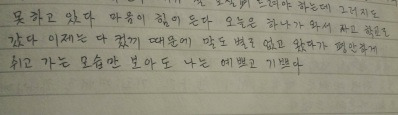 못 하고 있다 마음이 힘이 든다 오늘은 하나가 와서 자고 학교로
갔다 이제는 다 컸기 때문에 말도 별로 없고 왔다가 평안하게
쉬고 가는 모습만 보아도 나는 예쁘고 기쁘다